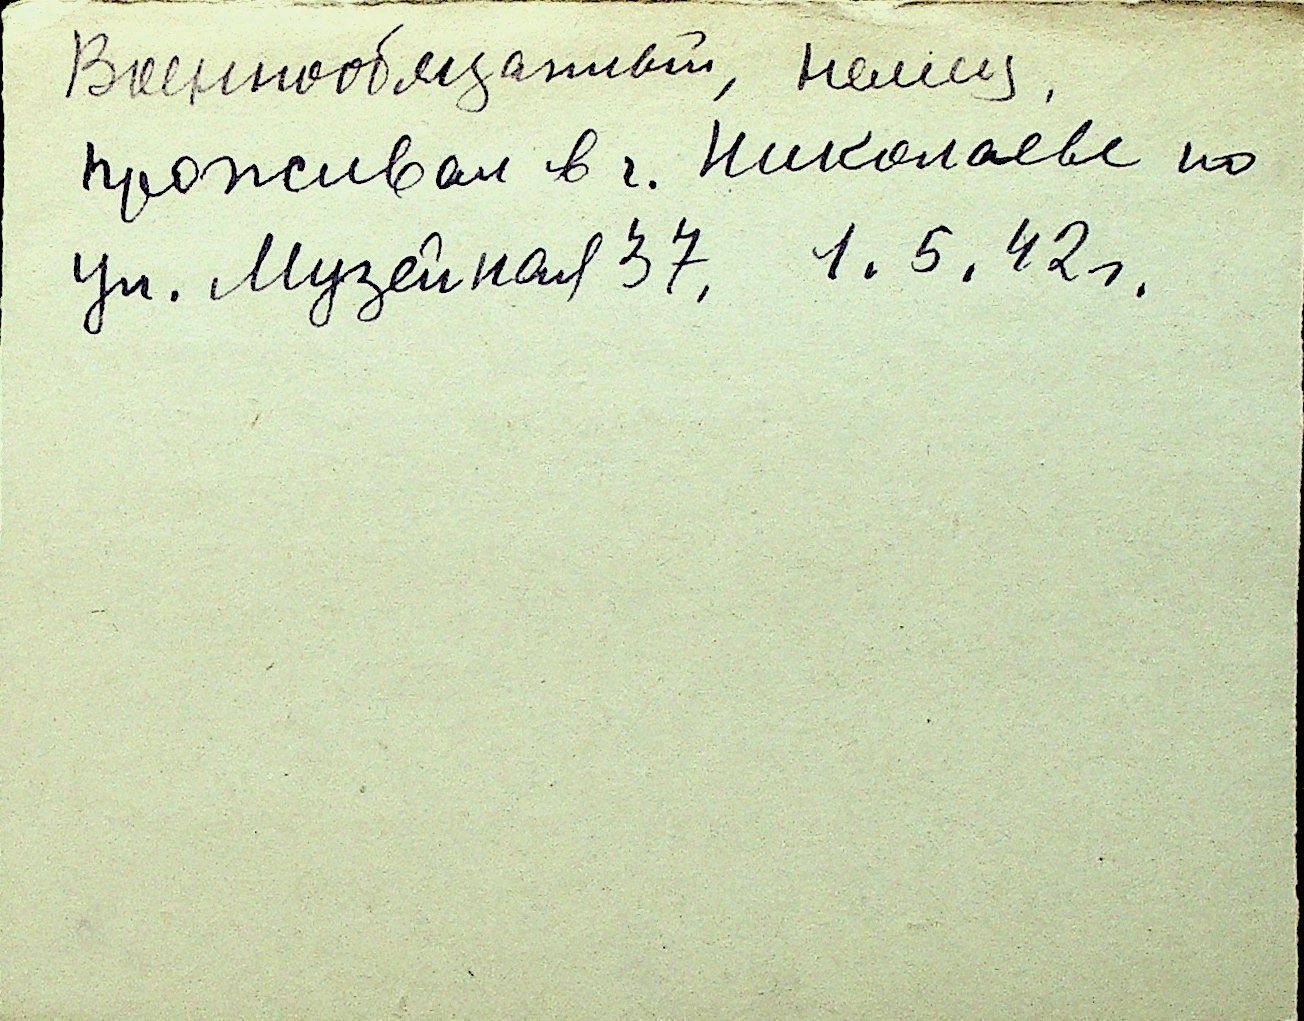 Военнообязаный, немец,
проживал в г. Николаеве по
ул. Музейная 37, 1.5.42г.